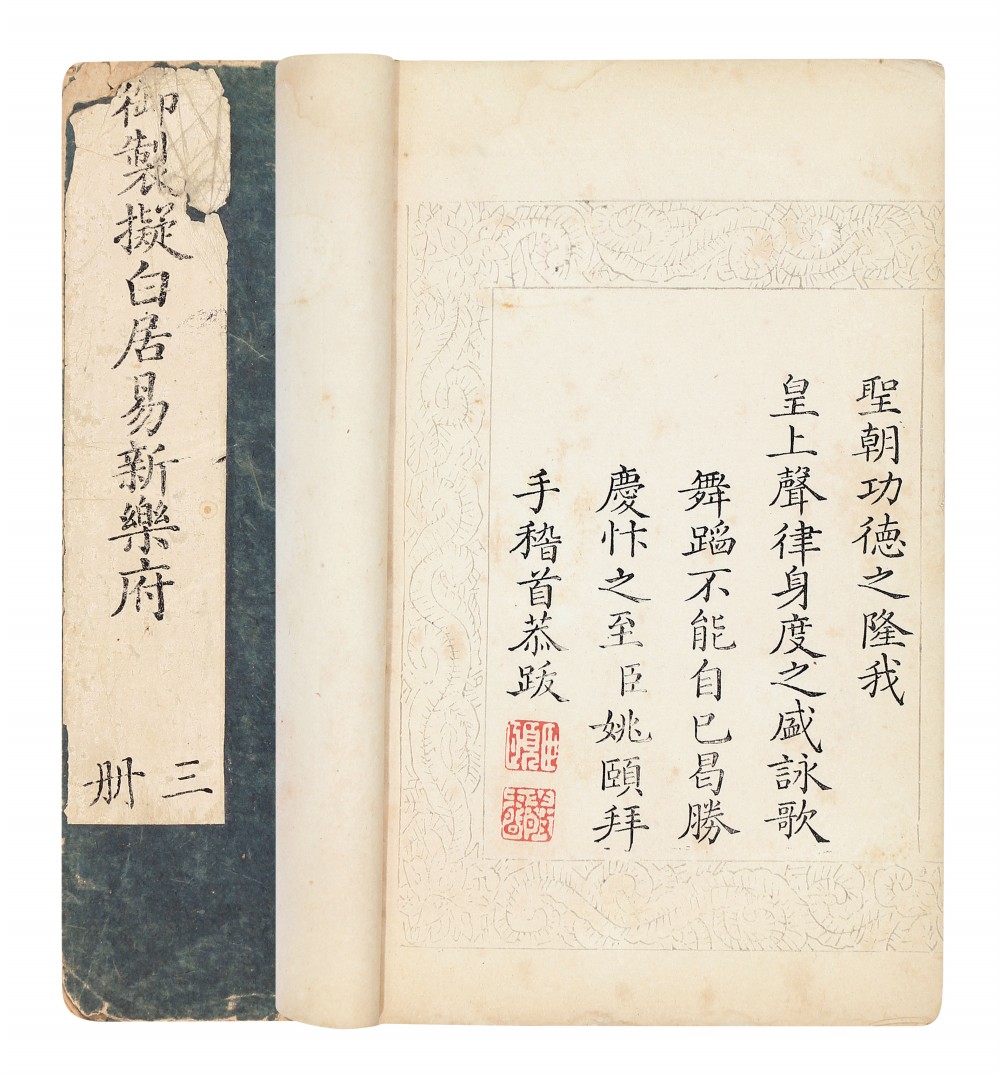 御製擬白居易新樂府
三冊
聖朝功德之隆我
皇上聲律身度之盛詠歌
舞蹈不能自已曷勝
慶忭之至臣姚頤拜
手稽首恭跋